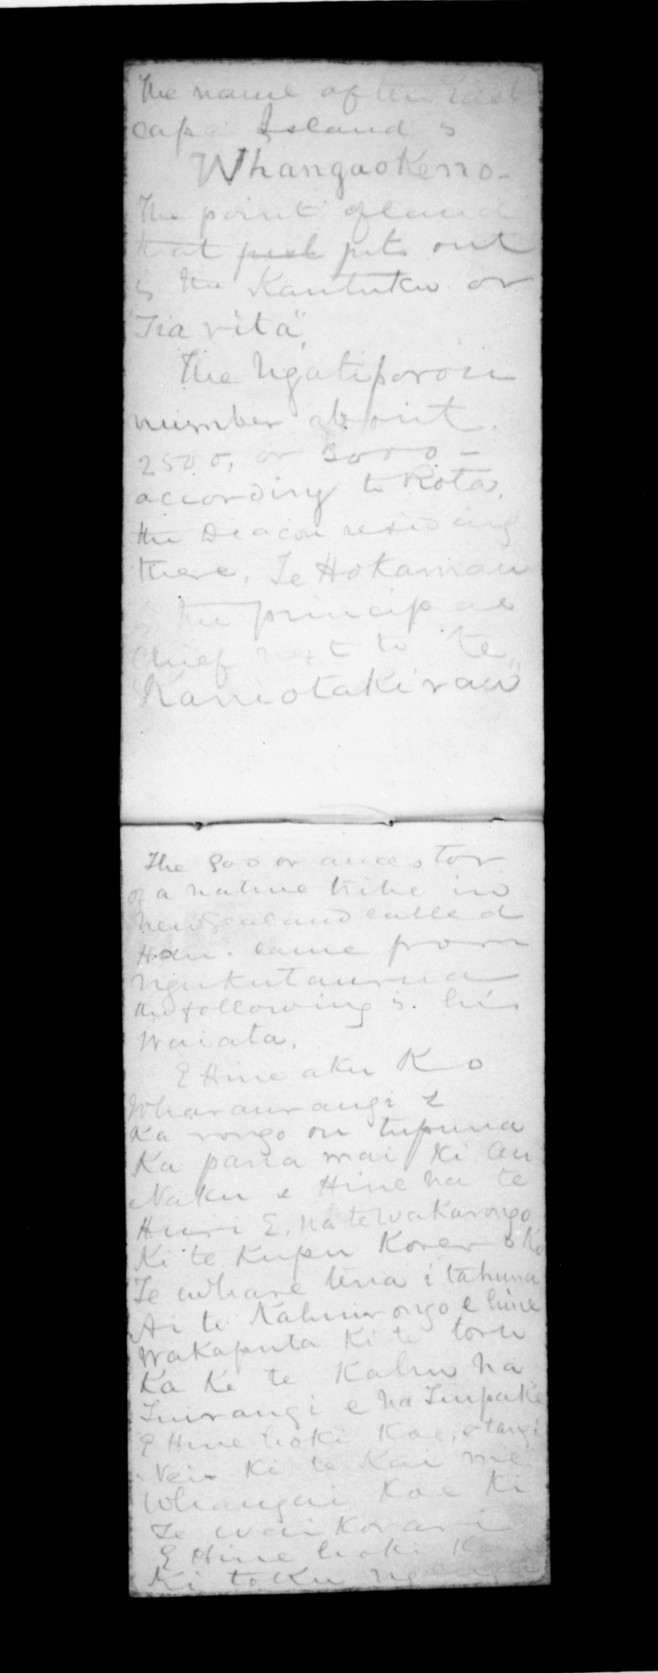 The name of the East
cape Island is
Whangaokeno-
The point of land
that puts out
is the Kautuku or
"Tia rita",
The Ngatiporou
number about
2500, or 3000 -
according to Rota,
the Deacon residing
there, Te Hokamau
is the principal
Chief next to "te
Kaniotakirau"
The God or ancestor
of a native tribe in
New Zealand called
Hau. came from
Ngukutaurua
the following is his
Waiata.
E Hine aku Ko
Wharaurangi E
Ka rongo ou tupuna
Ka pana mai Ki au
Naku e Hine na te
Huri E, na te wakarongo
Ki te Kupu Korero
Te whare tena i tahuna
Ai te Kahurorongo e hine
Wakaputa Ki te toru
Ka Ke te Kahu na
Tuirangi e na Tuupake
E Hine hoki Koe, e tangi
Nei Ki te Kai me
Whangai Koe Ki
Te wai Korari
E Hine hoki
Ki toku